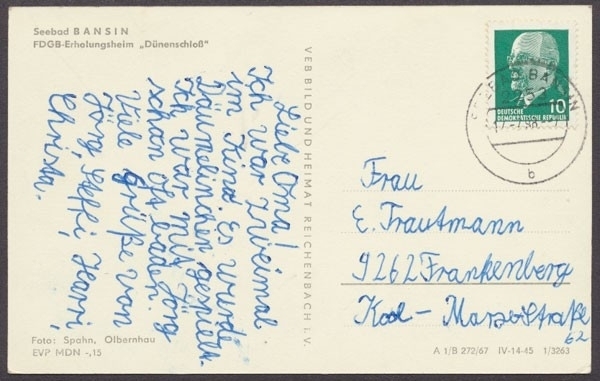 Seebad BANSIN
FDGB-Erholungsheim „Dünenschloß"
Liebe Oma!
Ich war zweimal
im Kino. Es wurde
Däumelinchen gespielt.
Ich war mit Jörg
schon oft baden.
Viele Grüße von
Jörg, Steffi, Harri,
Christa.
Foto: Spahn, Olbernhau
EVP MDN -,15
VEB BILD UND HEIMAT REICHENBACH I. V.
10
DEUTSCHE
DEMOKRATISCHE REPUBLIK
BANSIN
b
Frau
E. Trautmann
9262 Frankenberg
Karl-Marxstraße
62
A 1/B 272/67 IV-14-45 1/3263